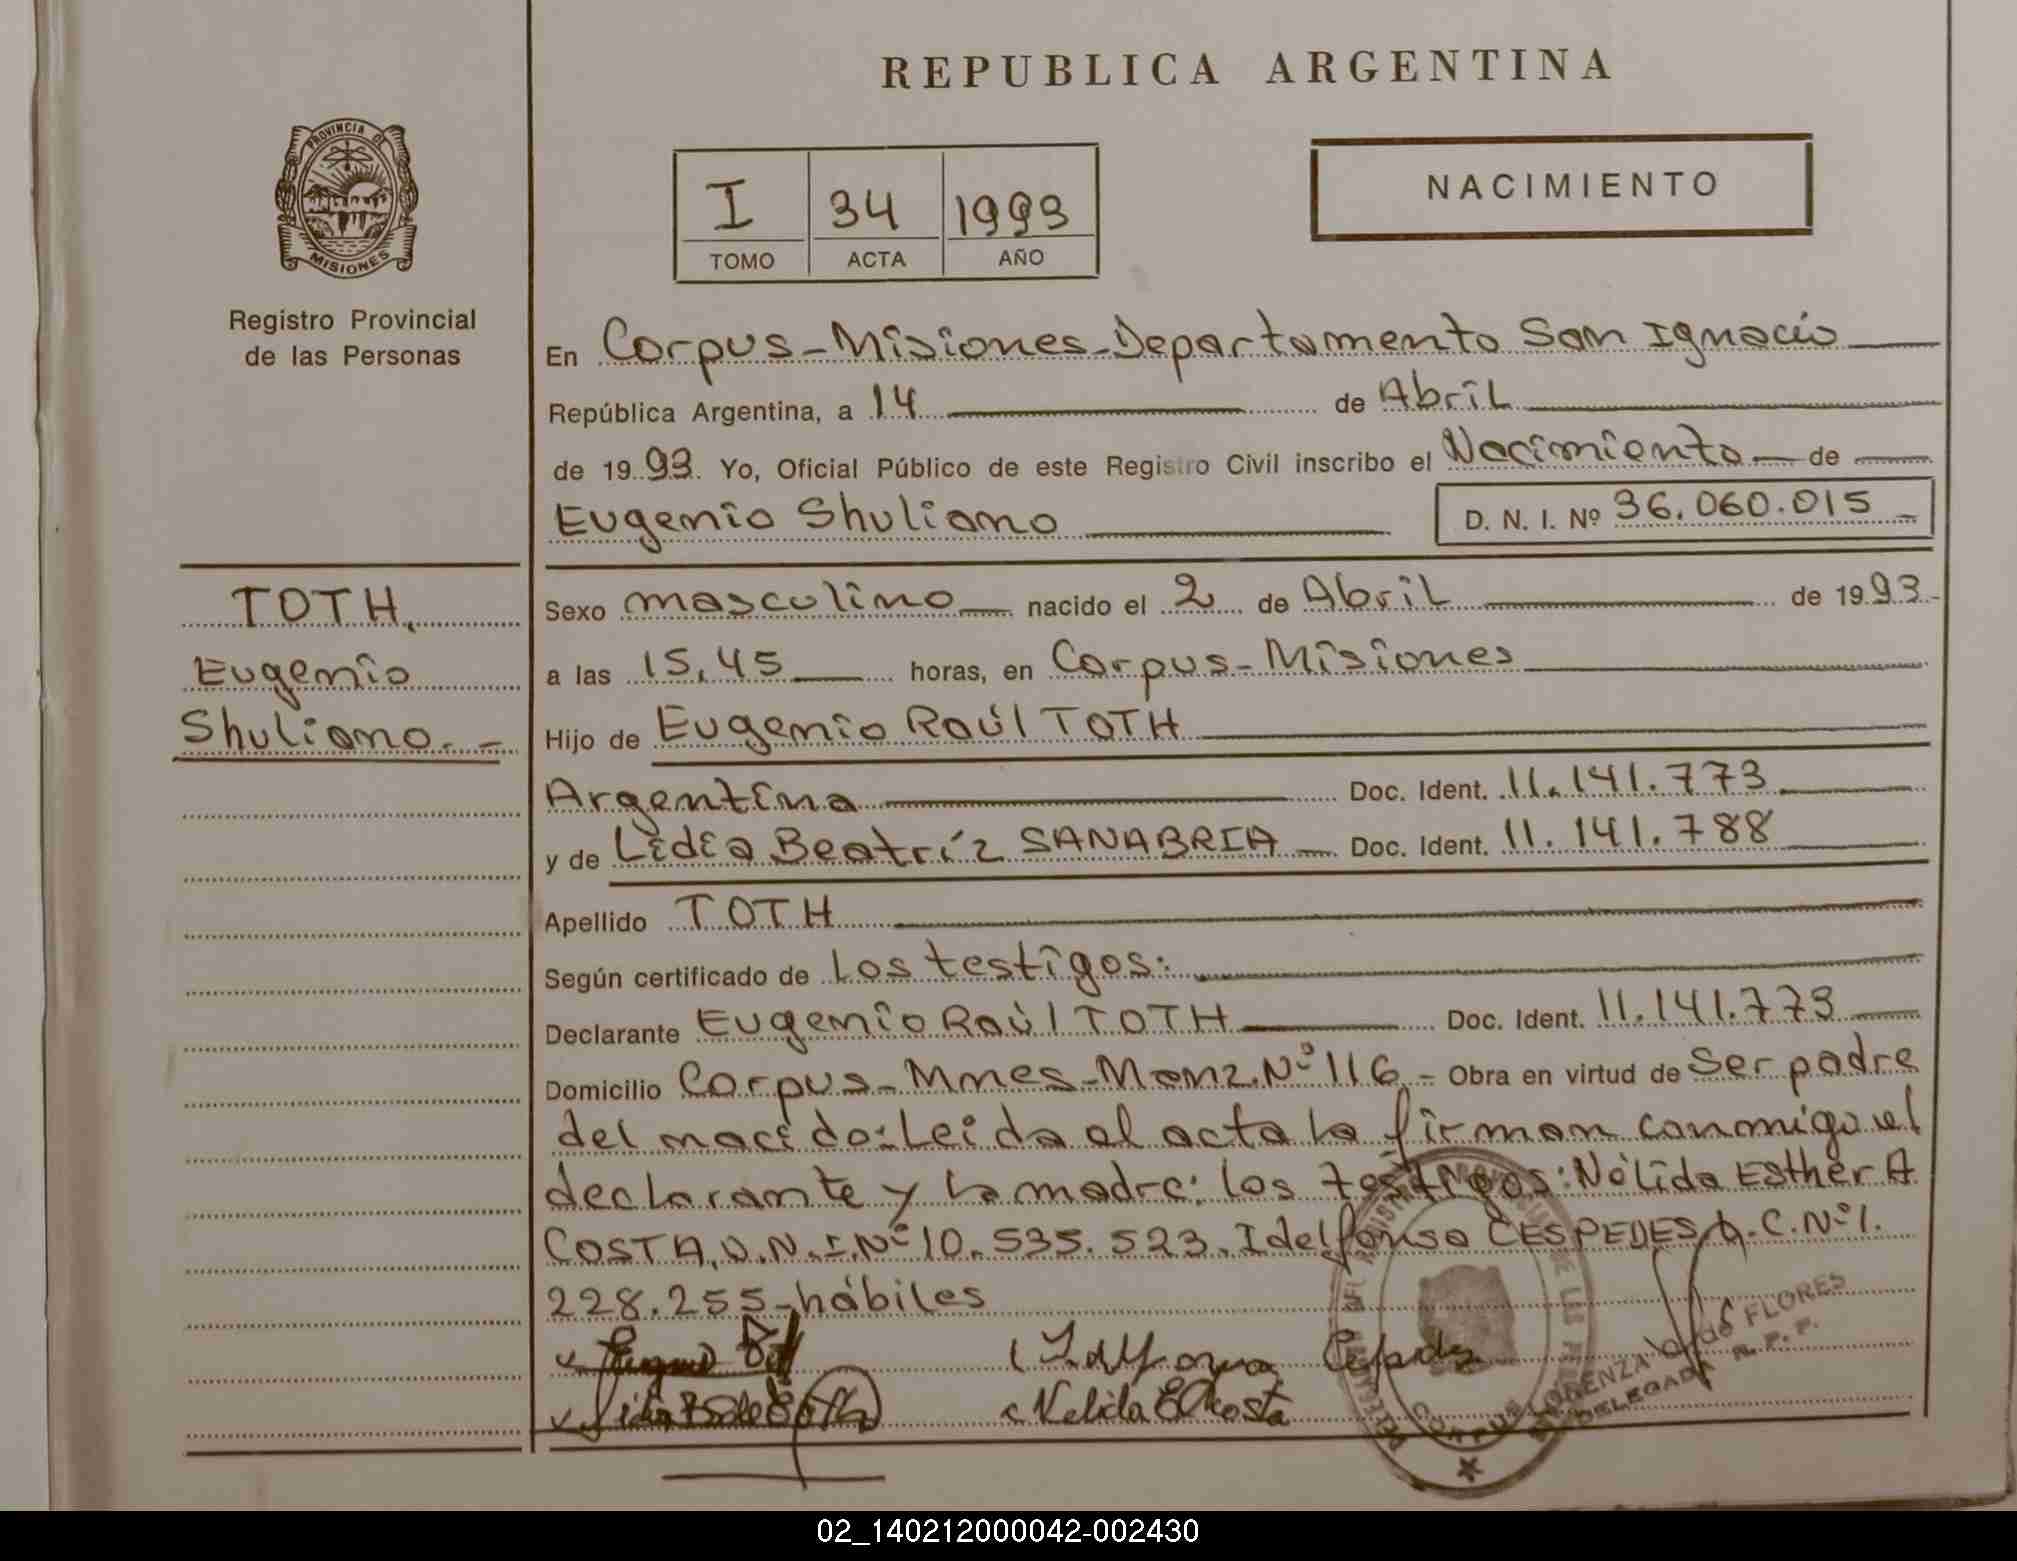 REPUBLICA ARGENTINA
PROVINCIA DE
MISIONES
Registro Provincial
de las Personas
I 34 1993
TOMO ACTA AÑO
NACIMIENTO
En Corpus-Misiones-Departamento San Ignacio
República Argentina, a 14 de Abril
de 1993. Yo, Oficial Público de este Registro Civil inscribo el Nacimiento de
Eugenio Shuliano
D. N. I. Nº 36.060.015
TOTH,
Eugenio
Shuliano.-
Sexo masculino nacido el 2 de Abril de 1993-
a las 15,45 horas, en Corpus-Misiones
Hijo de Eugenio Raúl TOTH
Argentina Doc. Ident. 11.141.773
y de Lidia Beatríz SANABRIA Doc. Ident. 11.141.788
Apellido TOTH
Según certificado de Los testigos:
Declarante Eugenio Raúl TOTH Doc. Ident. 11.141.773
Domicilio Corpus-Mnes-Manz.Nº116.- Obra en virtud de Ser padre
del nacido:Leida el acta la firman conmigo el
declarante y la madre: los testigos: Nélida Esther A
COSTA, D.N.I.Nº10.535.523. Idelfonso CESPEDES, D.C.Nº1.
228.255-hábiles
Nelida E Acosta
CORPUS
LORENZA de FLORES
DELEGADA R. P. P.
02_140212000042-002430